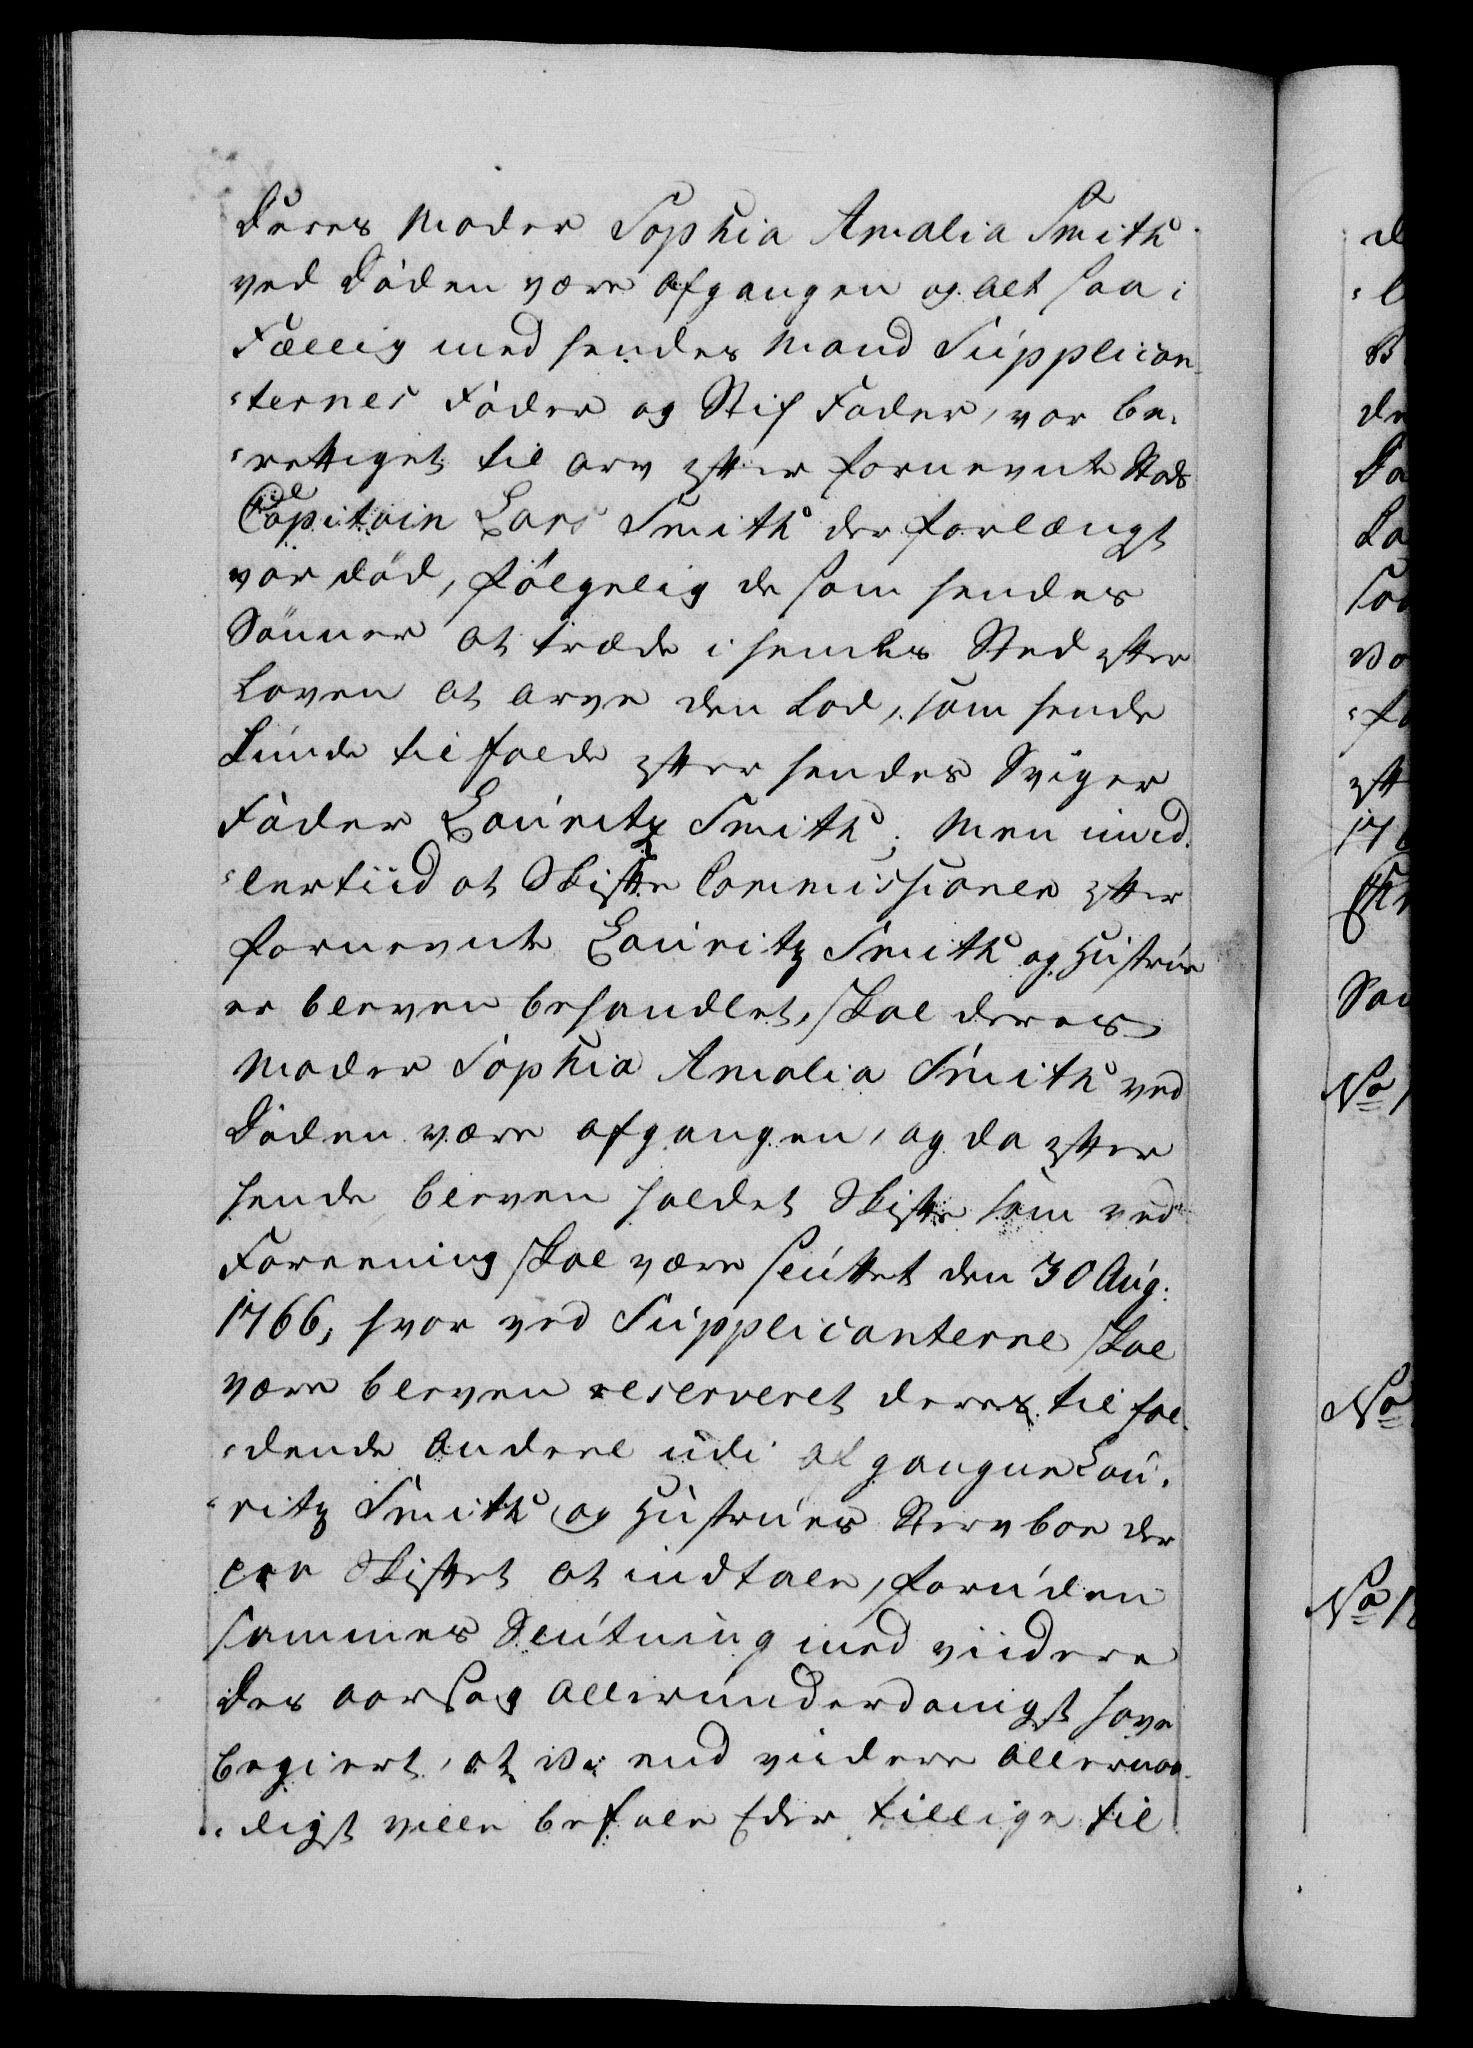 Deres Moder Sophia Amalia Smith
ved Døden være afgangen og alt saa i
Fællig med hendes Mand Supplican-
-ternes Fader og Stif Fader, var be-
-rettiget til arv efter fornevnte Stads
Capitain Lars Smith der forlængst
var død, følgelig de som hendes
Sønner at træde i hendes Sted efter
Loven at arve den Lod, som hende
kunde tilfalde efter hendes Sviger
Fader Lauritz Smith; Men imid-
-lertiid at Skifte Commissionen efter
fornevnte Lauritz Smith og Hustrue
er bleven behandlet, skal deres
Moder Sophia Amalia Smith ved
Døden være afgangen, og da efter
hende bleven holdet Skifte som ved
Foreening skal være sluttet den 30 Aug:
1766, hvor ved Supplicanterne skal
være bleven reserveret deres til fal-
-dende Andeel udi afgangne Lau-
-ritz Smith og Hustrues Sterv boe der
paa Skiftet at indtale, foruden
sammes Slutning med viidere
Des aarsag allerunderdanigst have
begiert, at Vi end viidere allernaa-
-digst ville befale Eder tillige til